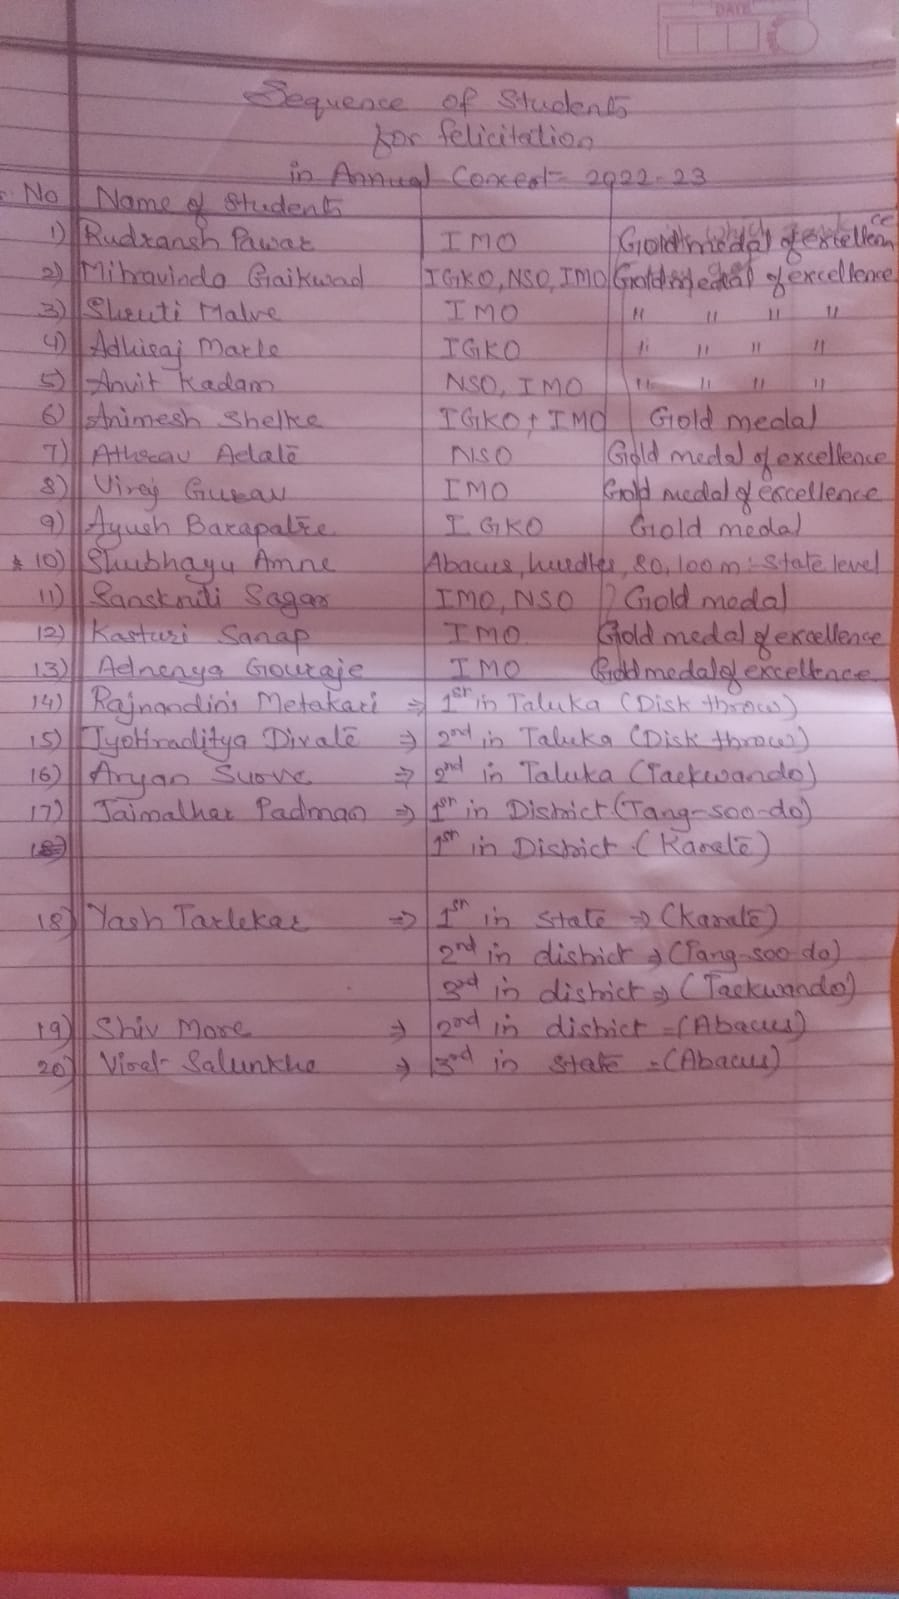 DATE
Sequence of Students
for felicitation
in Annual Concert 2022-23
No Name of Students
1) Rudransh Pawar IMO Gold medal of excellence
2) Mihravinda Gaikwad IGKO, NSO, IMO Gold medal of excellence
3) Shruti Malve IMO " " " "
4) Adhiraj Marle IGKO " " " "
5) Anvit Kadam NSO, IMO " " " "
6) Animesh Shelke IGKO + IMO Gold medal
7) Atharav Adate NSO Gold medal of excellence
8) Viraj Gurav IMO Gold medal of excellence
9) Ayush Barapatre IGKO Gold medal
* 10) Shubhayu Amne Abacus, hurdles, 80, 100 m :- State level
11) Sanskruti Sagar IMO, NSO Gold medal
12) Kasturi Sanap IMO Gold medal of excellence
13) Adnenya Gouraje IMO Gold medal of excellence
14) Rajnandini Metakari ⇒ 1st in Taluka (Disk throw)
15) Jyotiraditya Divate ⇒ 2nd in Taluka (Disk throw)
16) Aryan Surve ⇒ 2nd in Taluka (Taekwando)
17) Jaimalhar Padman ⇒ 1st in District (Tang-soo-do)
1st in District (Karate)
18) Yash Tarlekar ⇒ 1st in State ⇒ (Karate)
2nd in district ⇒ (Tang-soo do)
3rd in district ⇒ (Taekwando)
19) Shiv More ⇒ 2nd in district = (Abacus)
20) Virat Salunkhe ⇒ 3rd in State = (Abacus)